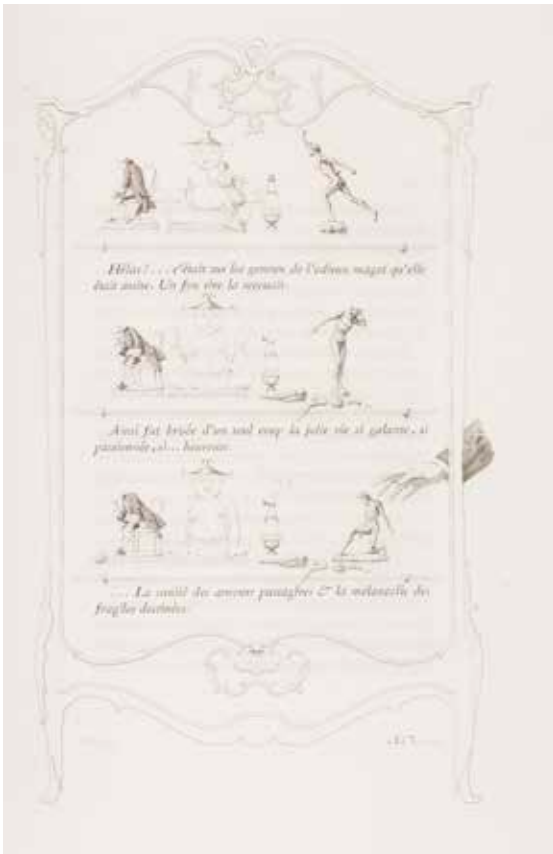 Hélas!... c'était sur les genoux de l'odieux magot qu'elle
était assise. Un fou rire la secouait.
Ainsi fut brisée d'un seul coup la jolie vie si galante, si
passionnée, si... heureuse.
.... La vanité des amours passagères & la mélancolie des
fragiles destinées